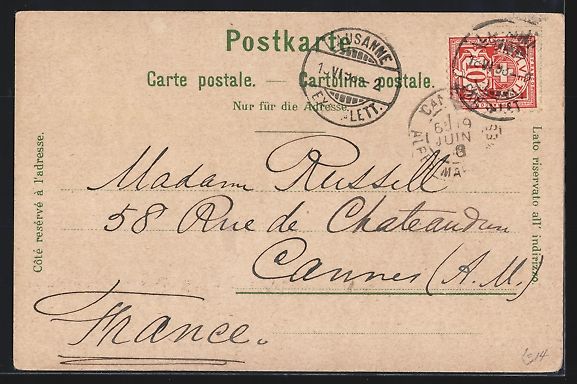 Postkarte
Carte postale. — Cartolina postale.
Nur für die Adresse.
Côté reservé à l'adresse.
Lato riservato all' indirizzo
LAUSANNE
LETT.
10
JUIN
Madame Russell
58 Rue de Chateaudun
Cannes (A. M.)
France.